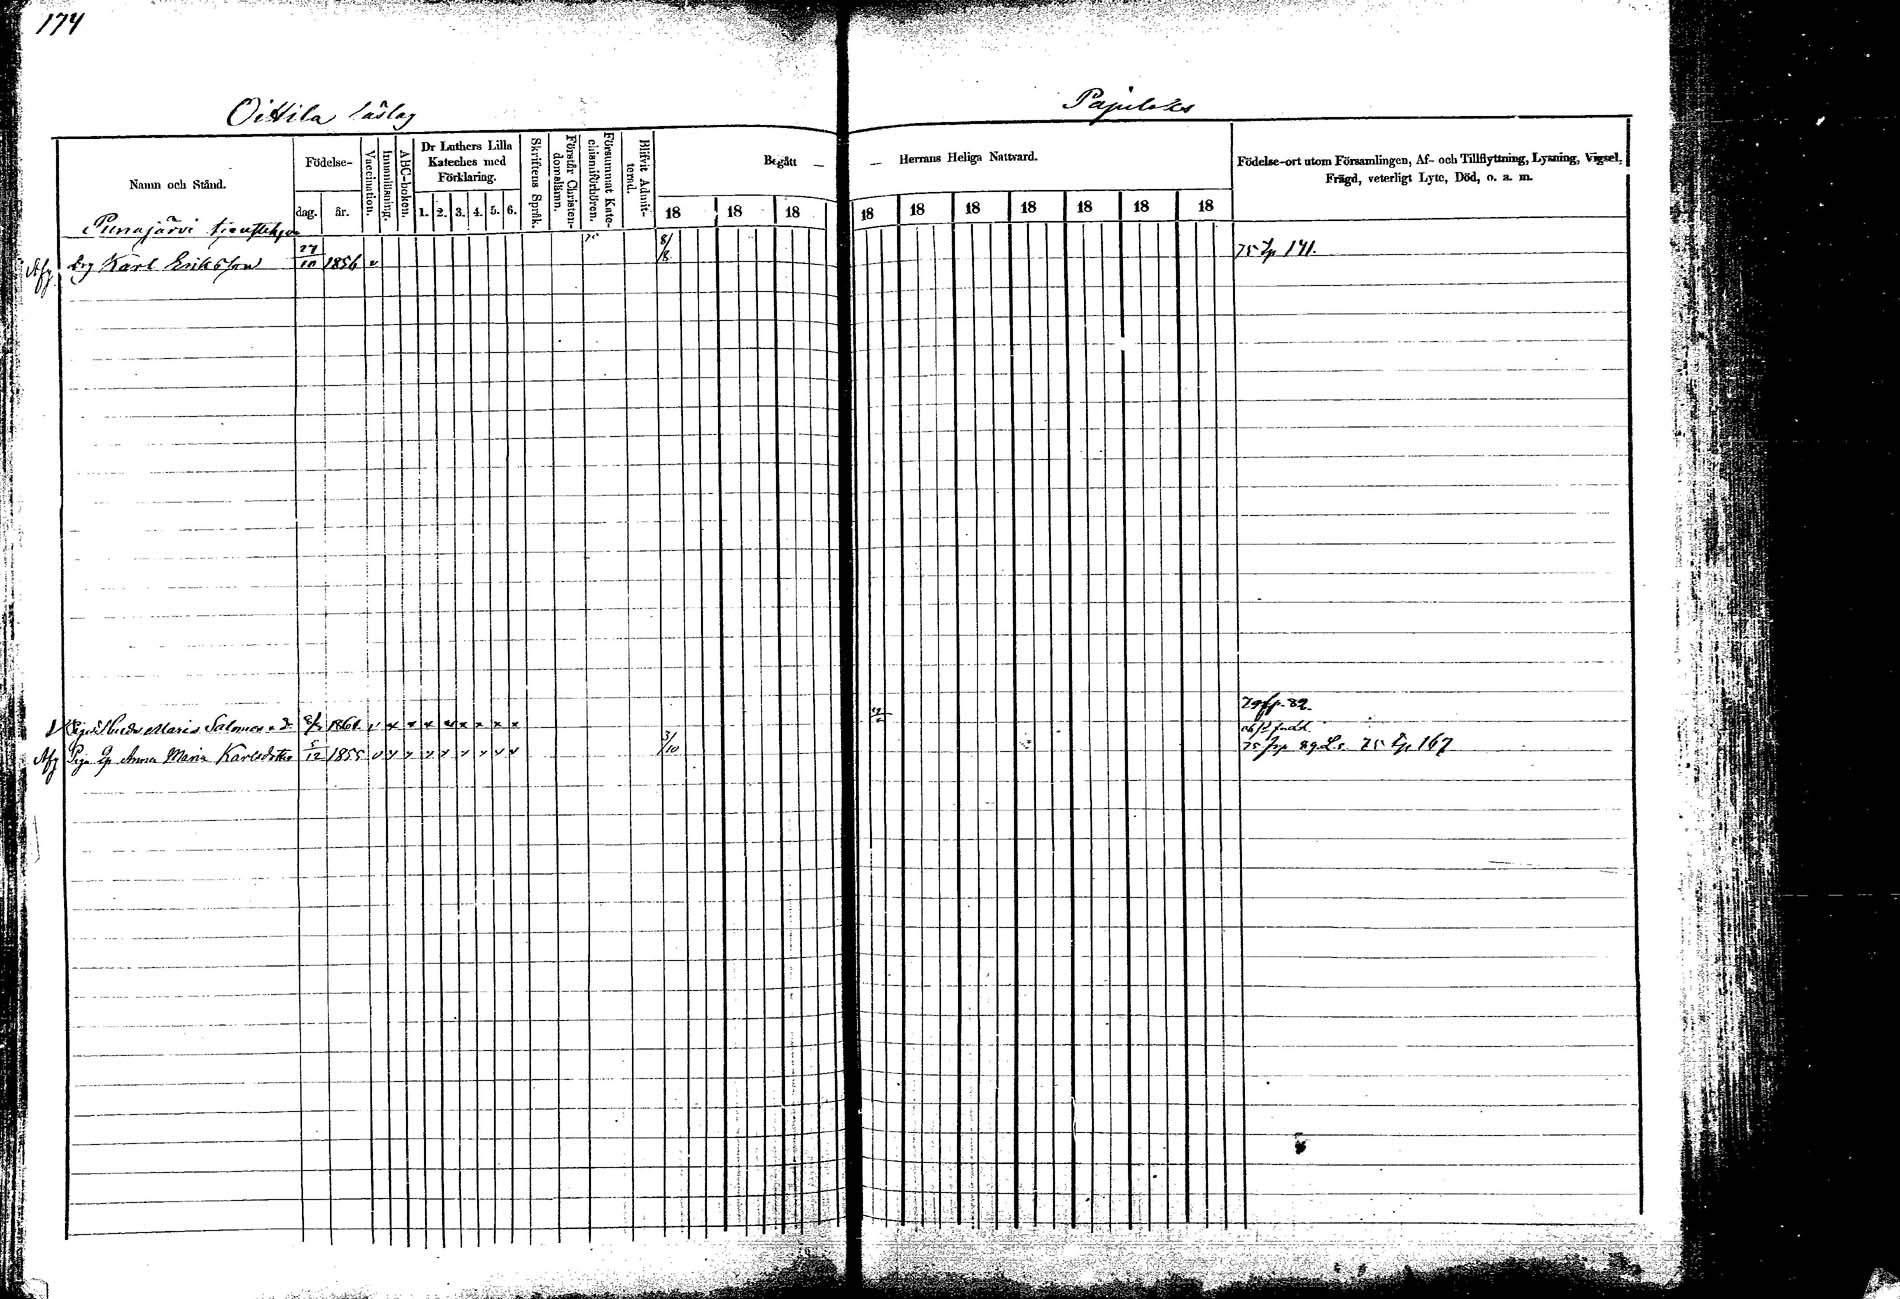 174
Oittila läslag
Papulaks
Namn och Stånd.
Födelse-
dag. år.
Vaccination.
Innanläsning.
ABC-boken.
Dr Luthers Lilla
Kateches med
Förklaring.
1. 2. 3. 4. 5. 6.
Skriftens Språk.
Förstår Christen-
domslämn.
Försummat Kate-
chismiförhören.
Blifvit Admit-
terad.
Begått — — Herrans Heliga Nattvard.
18 18 18 18 18 18 18 18 18 18
Födelse-ort utom Församlingen, Af- och Tillflyttning, Lysning, Vigsel,
Frägd, veterligt Lyte, Död, o. a. m.
Punajärvi
75
Afg Drg Karl Eriksson 27/10 1856 v 8/8 75 Fp 141.
79 fp. 82.
Maria Salomonsdr 1861
Afg Piga Anna Maria Karlsdotter 5/12 1855 v 3/10 75 Fp 167